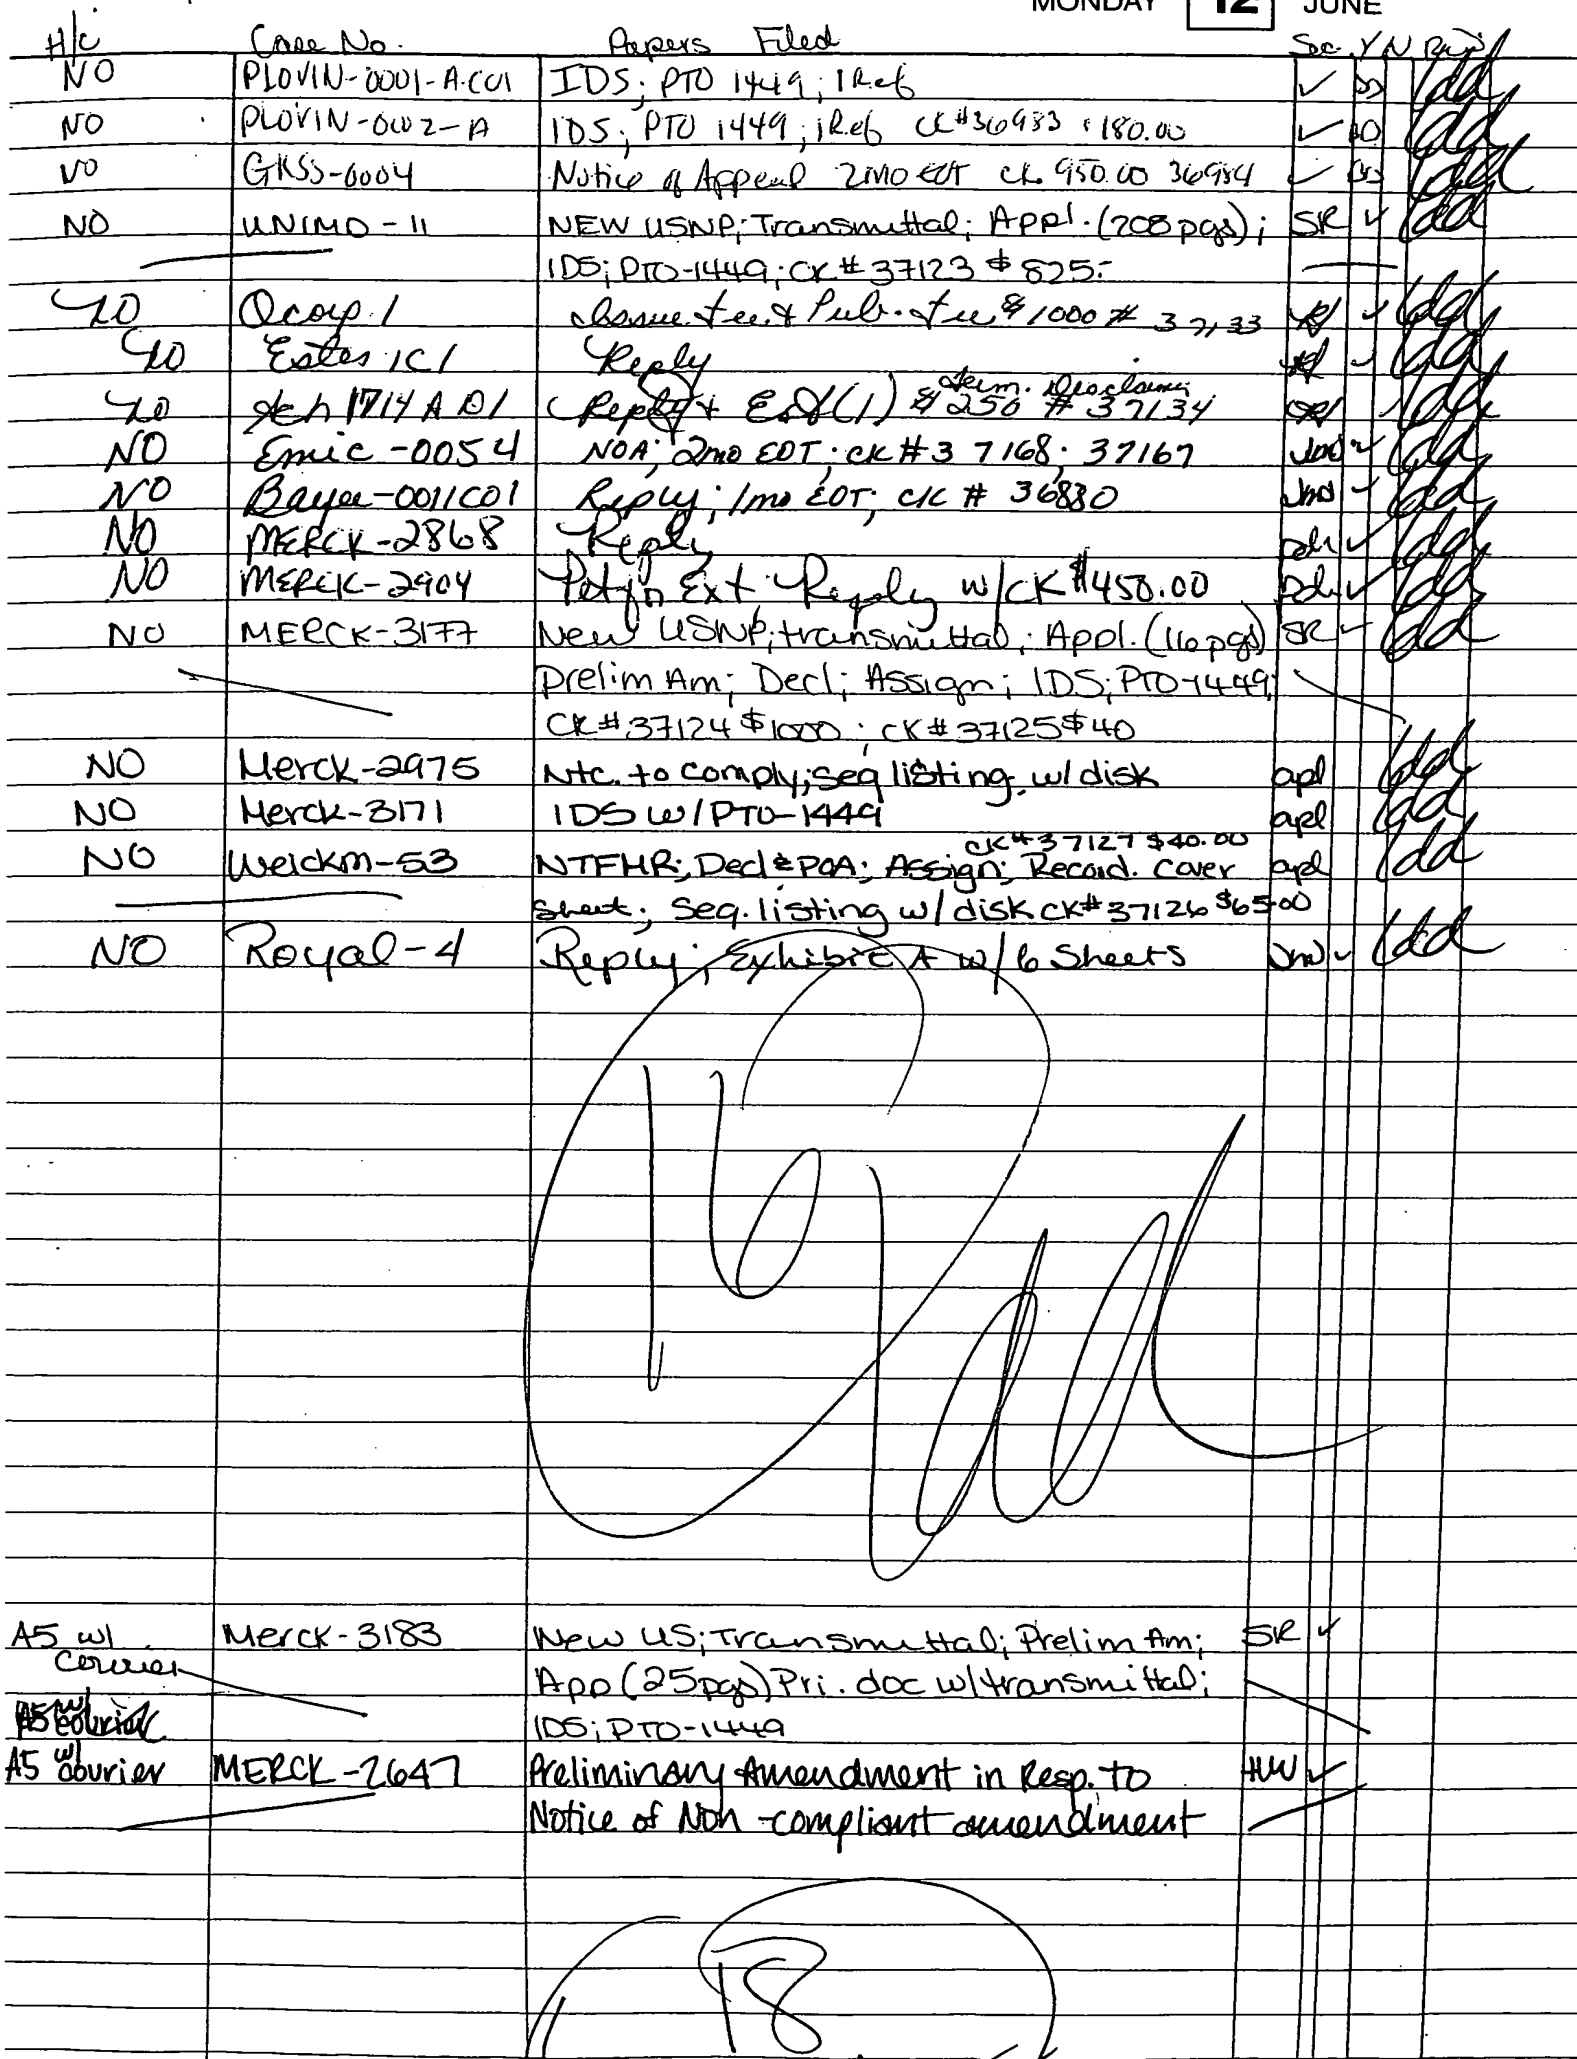 MONDAY 12 JUNE
H/C Case No. Papers Filed Sec. Y N
NO PLOVIN-0001-A-C01 IDS; PTO 1449; 1Ref ✓
NO PLOVIN-0002-A IDS; PTO 1449; 1Ref CK#36983 180.00 ✓
NO GKSS-0004 Notice of Appeal 2MO EOT ck. 950.00 36984 ✓
NO UNIMO-11 NEW USNP; Transmittal; Appl. (208 pgs); SR ✓
IDS; PTO-1449; CK # 37123 $ 825-
NO Qcorp 1 Issue Fee & Pub. Fee $1000 # 37133 ✓
NO Estes 1C1 Reply ✓
Term. Disclaimer
NO 1714 A D1 Reply + EOT(1) $ 250 # 37134 ✓
NO Emic-0054 NOA; 2mo EOT; CK # 37168; 37167 ✓
NO Bayer-0011C01 Reply; 1mo EOT; CK # 36880 ✓
NO MERCK-2868 Reply pdr ✓
NO MERCK-2904 Pet fn Ext Reply w/CK $450.00 pdr ✓
NO MERCK-3177 New USNP; transmittal; Appl. (16 pgs) SR ✓
prelim Am; Decl; Assign; IDS; PTO-1449;
CK # 37124 $1000; CK # 37125 $40
NO Merck-2975 Ntc. to comply; seq listing w/ disk apl
NO Merck-3171 IDS W/PTO-1449 apl
CK# 37127 $40.00
NO Weickm-53 NTFMR; Decl & POA; Assign; Record. Cover apl
Sheet; Seq. listing w/ disk CK# 37126 $65.00
NO Royal-4 Reply; Exhibit A w/6 Sheets ✓
16
A5 w/ Merck-3183 New US; Transmittal; Prelim Am; SR ✓
courier App (25pgs) Pri. doc w/transmittal;
IDS; PTO-1449
A5 w/ courier MERCK-2647 Preliminary Amendment in Resp. to HW ✓
Notice of Non-compliant amendment
18